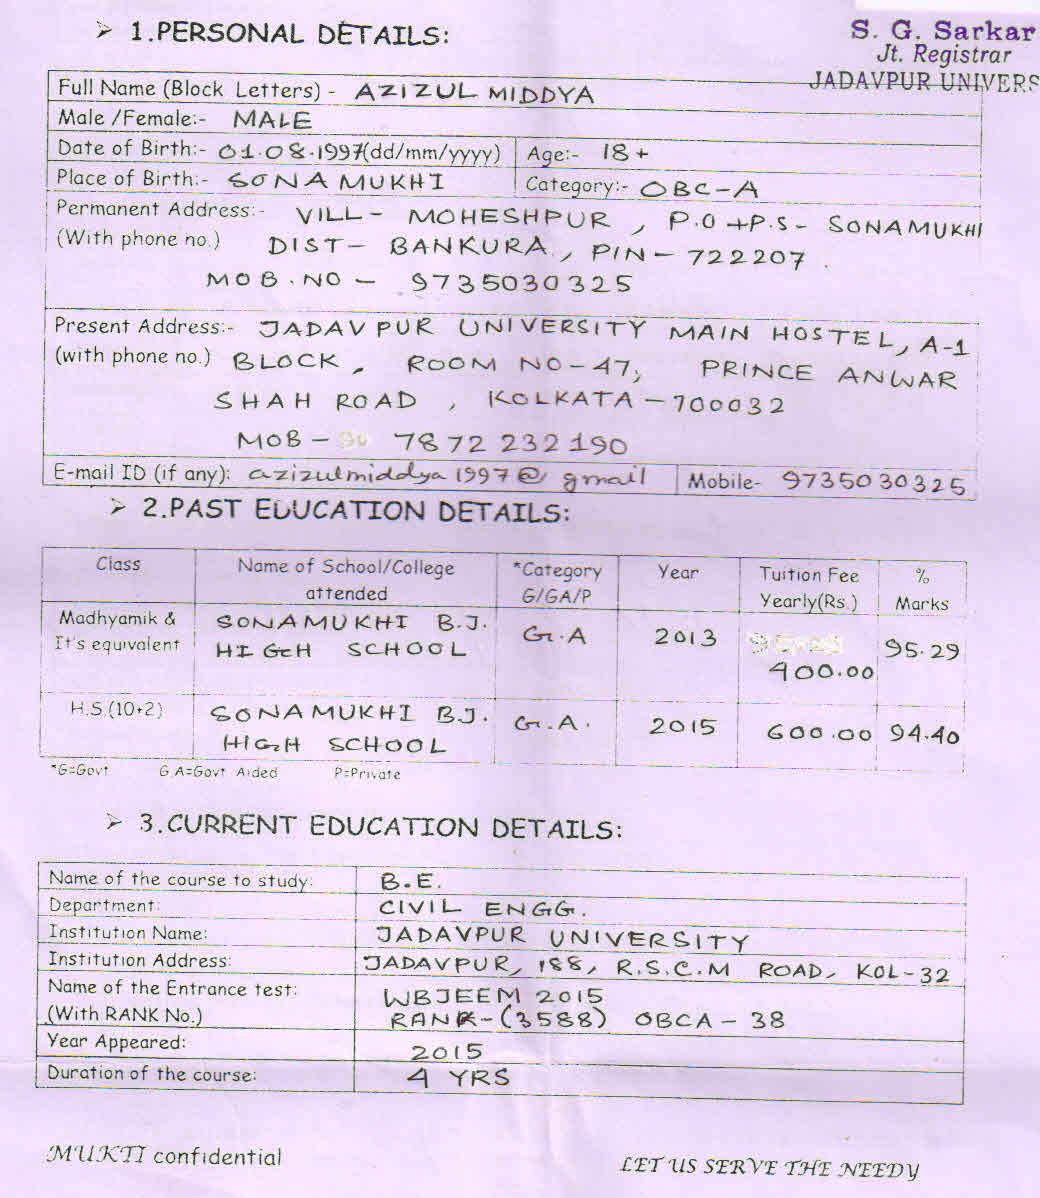 ➢ 1.PERSONAL DETAILS:
S. G. Sarkar
Jt. Registrar
JADAVPUR UNIVERS
Full Name (Block Letters) - AZIZUL MIDDYA
Male /Female:- MALE
Date of Birth:- 01.08.1997(dd/mm/yyyy) Age:- 18+
Place of Birth:- SONAMUKHI Category:- OBC-A
Permanent Address:- VILL- MOHESHPUR, P.O+P.S- SONAMUKHI
(With phone no.) DIST- BANKURA, PIN- 722207.
MOB.NO - 9735030325
Present Address:- JADAVPUR UNIVERSITY MAIN HOSTEL, A-1
(with phone no.) BLOCK, ROOM NO-47, PRINCE ANWAR
SHAH ROAD, KOLKATA-700032
MOB- 7872232190
E-mail ID (if any): azizulmiddya1997@gmail Mobile- 9735030325
➢ 2.PAST EDUCATION DETAILS:
Class Name of School/College *Category Year Tuition Fee %
attended G/GA/P Yearly(Rs.) Marks
Madhyamik & SONAMUKHI B.J. G.A 2013 95.29
It's equivalent HIGH SCHOOL 400.00
H.S.(10+2) SONAMUKHI B.J. G.A. 2015 600.00 94.40
HIGH SCHOOL
*G=Govt G.A=Govt Aided P=Private
➢ 3.CURRENT EDUCATION DETAILS:
Name of the course to study: B.E.
Department: CIVIL ENGG.
Institution Name: JADAVPUR UNIVERSITY
Institution Address: JADAVPUR, 188, R.S.C.M ROAD, KOL-32
Name of the Entrance test: WBJEEM 2015
(With RANK No.) RANK-(3588) OBCA-38
Year Appeared: 2015
Duration of the course: 4 YRS
MUKTI confidential
LET US SERVE THE NEEDY